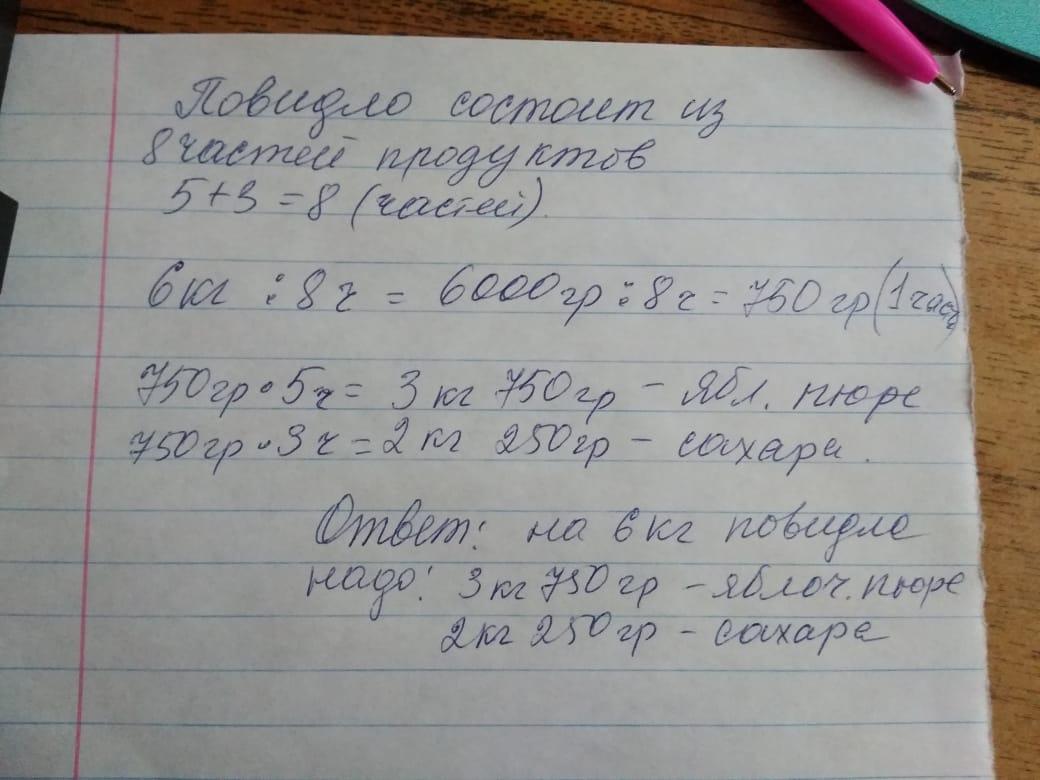 Повидло состоит из
8 частей продуктов
5+3=8 (частей).
6кг : 8ч = 6000гр : 8ч = 750 гр (1 часть)
750гр • 5ч = 3 кг 750 гр - ябл. пюре
750гр • 3ч = 2 кг 250гр - сахара.
Ответ: на 6 кг повидла
надо: 3 кг 750 гр - яблоч. пюре
2 кг 250 гр - сахара